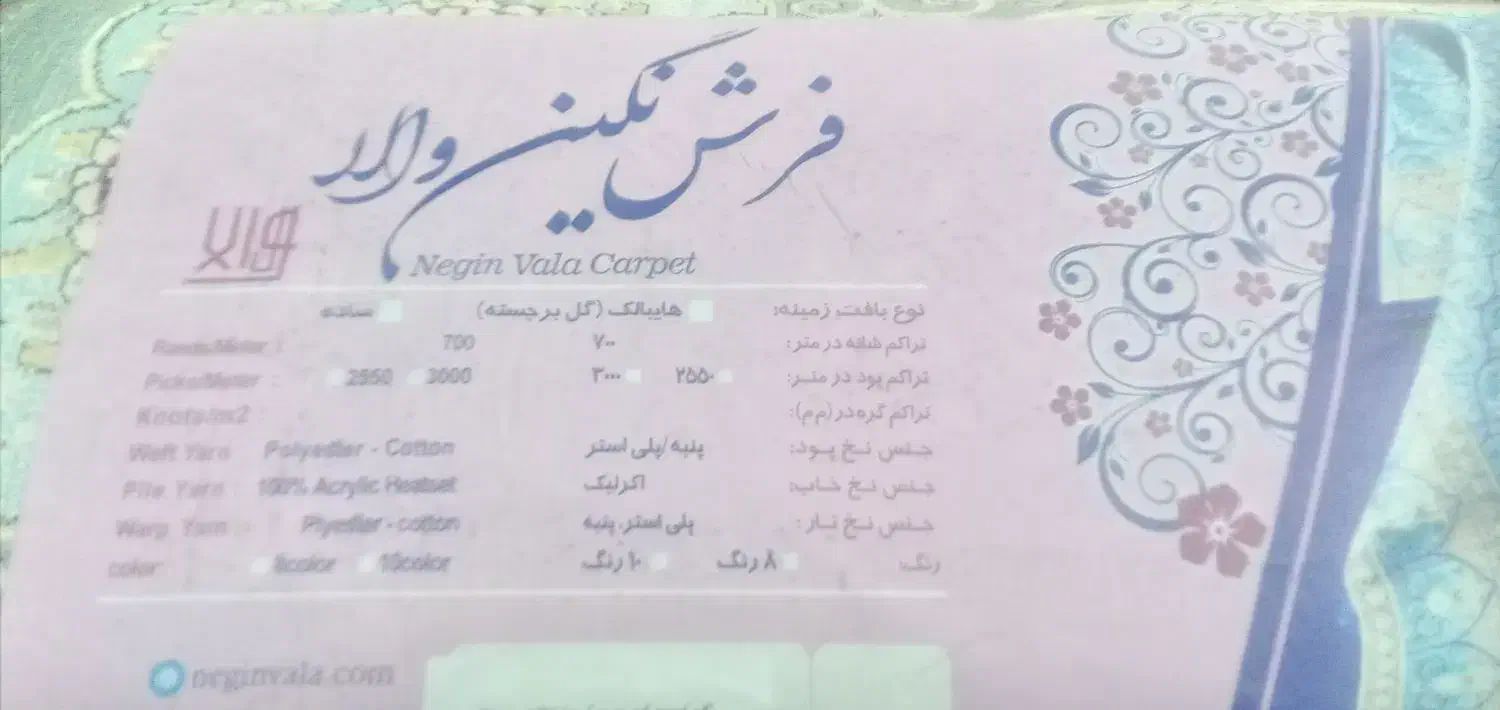 فرش نگین والا
والا
Negin Vala Carpet
نوع بافت زمینه: هایبالک (گل برجسته) ساده
تراکم شانه در متر: ۷۰۰ 700 Reeds/Meter :
تراکم پود در متر: ۲۵۵۰ ۳۰۰۰ 3000 2550 Picks/Meter :
تراکم گره در (م.م): Knots/m2 :
جنس نخ پود: پنبه/پلی استر Polyester - Cotton Weft Yarn
جنس نخ خاب: اکرلیک 100% Acrylic Heatset Pile Yarn :
جنس نخ تار: پلی استر، پنبه Plyester - cotton Warp Yarn :
رنگ: ۸ رنگ ۱۰ رنگ 10color 8color color:
neginvala.com